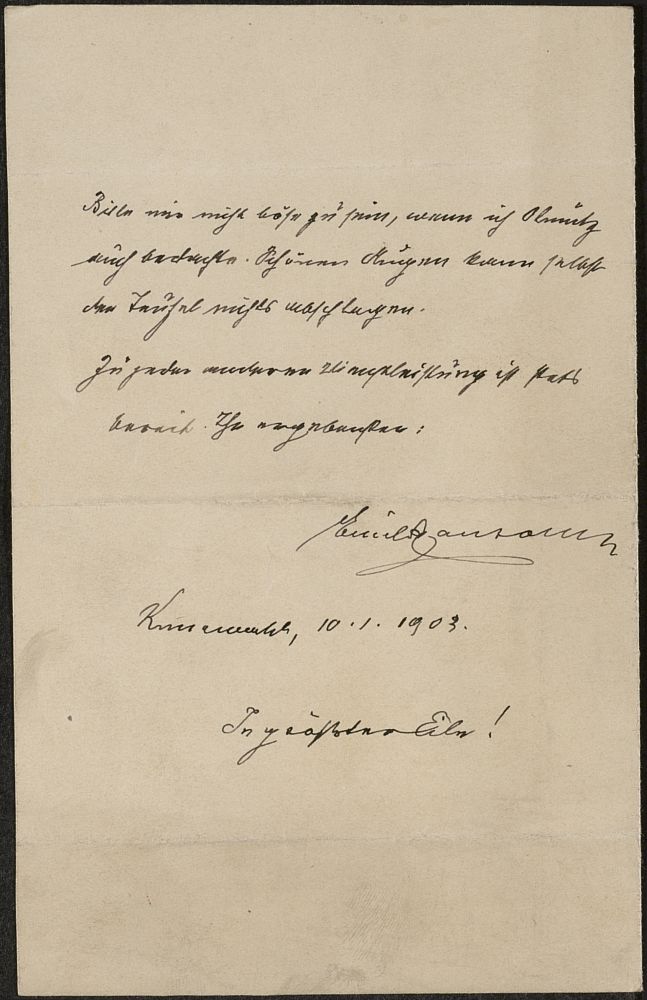 Bitte mir nicht böse zu sein, wenn ich Olmütz
auch bedachte. Schönen Augen kann selbst
der Teufel nichts abschlagen.
Zu jeder anderen Dienstleistung ist stets
bereit. Ihr ergebenster:
Emil
10.1.1903.
In größter Eile!